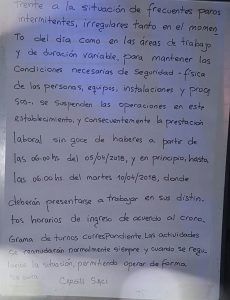 Frente a la situación de frecuentes paros
intermitentes, irregulares tanto en el momen
To del día como en las áreas de trabajo
y de duración variable, para mantener las
Condiciones necesarias de seguridad -física
de las personas, equipos, instalaciones y proce
sos-, se suspenden las operaciones en este
establecimiento, y consecuentemente la prestación
laboral sin goce de haberes a partir de
las 06:00hs del 05/04/2018, y en principio, hasta
las 06:00hs del martes 10/04/2018, donde
deberán presentarse a trabajar en sus distin
tos horarios de ingreso de acuerdo al crono
Grama de turnos correspondiente. Las actividades
se reanudarán normalmente siempre y cuando se regu
larice la situación, permitiendo operar de forma
segura.